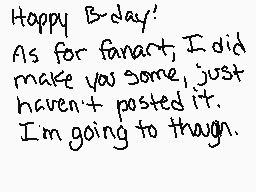 Happy B-day!
As for fanart, I did
make you some, just
haven't posted it.
I'm going to thougn.